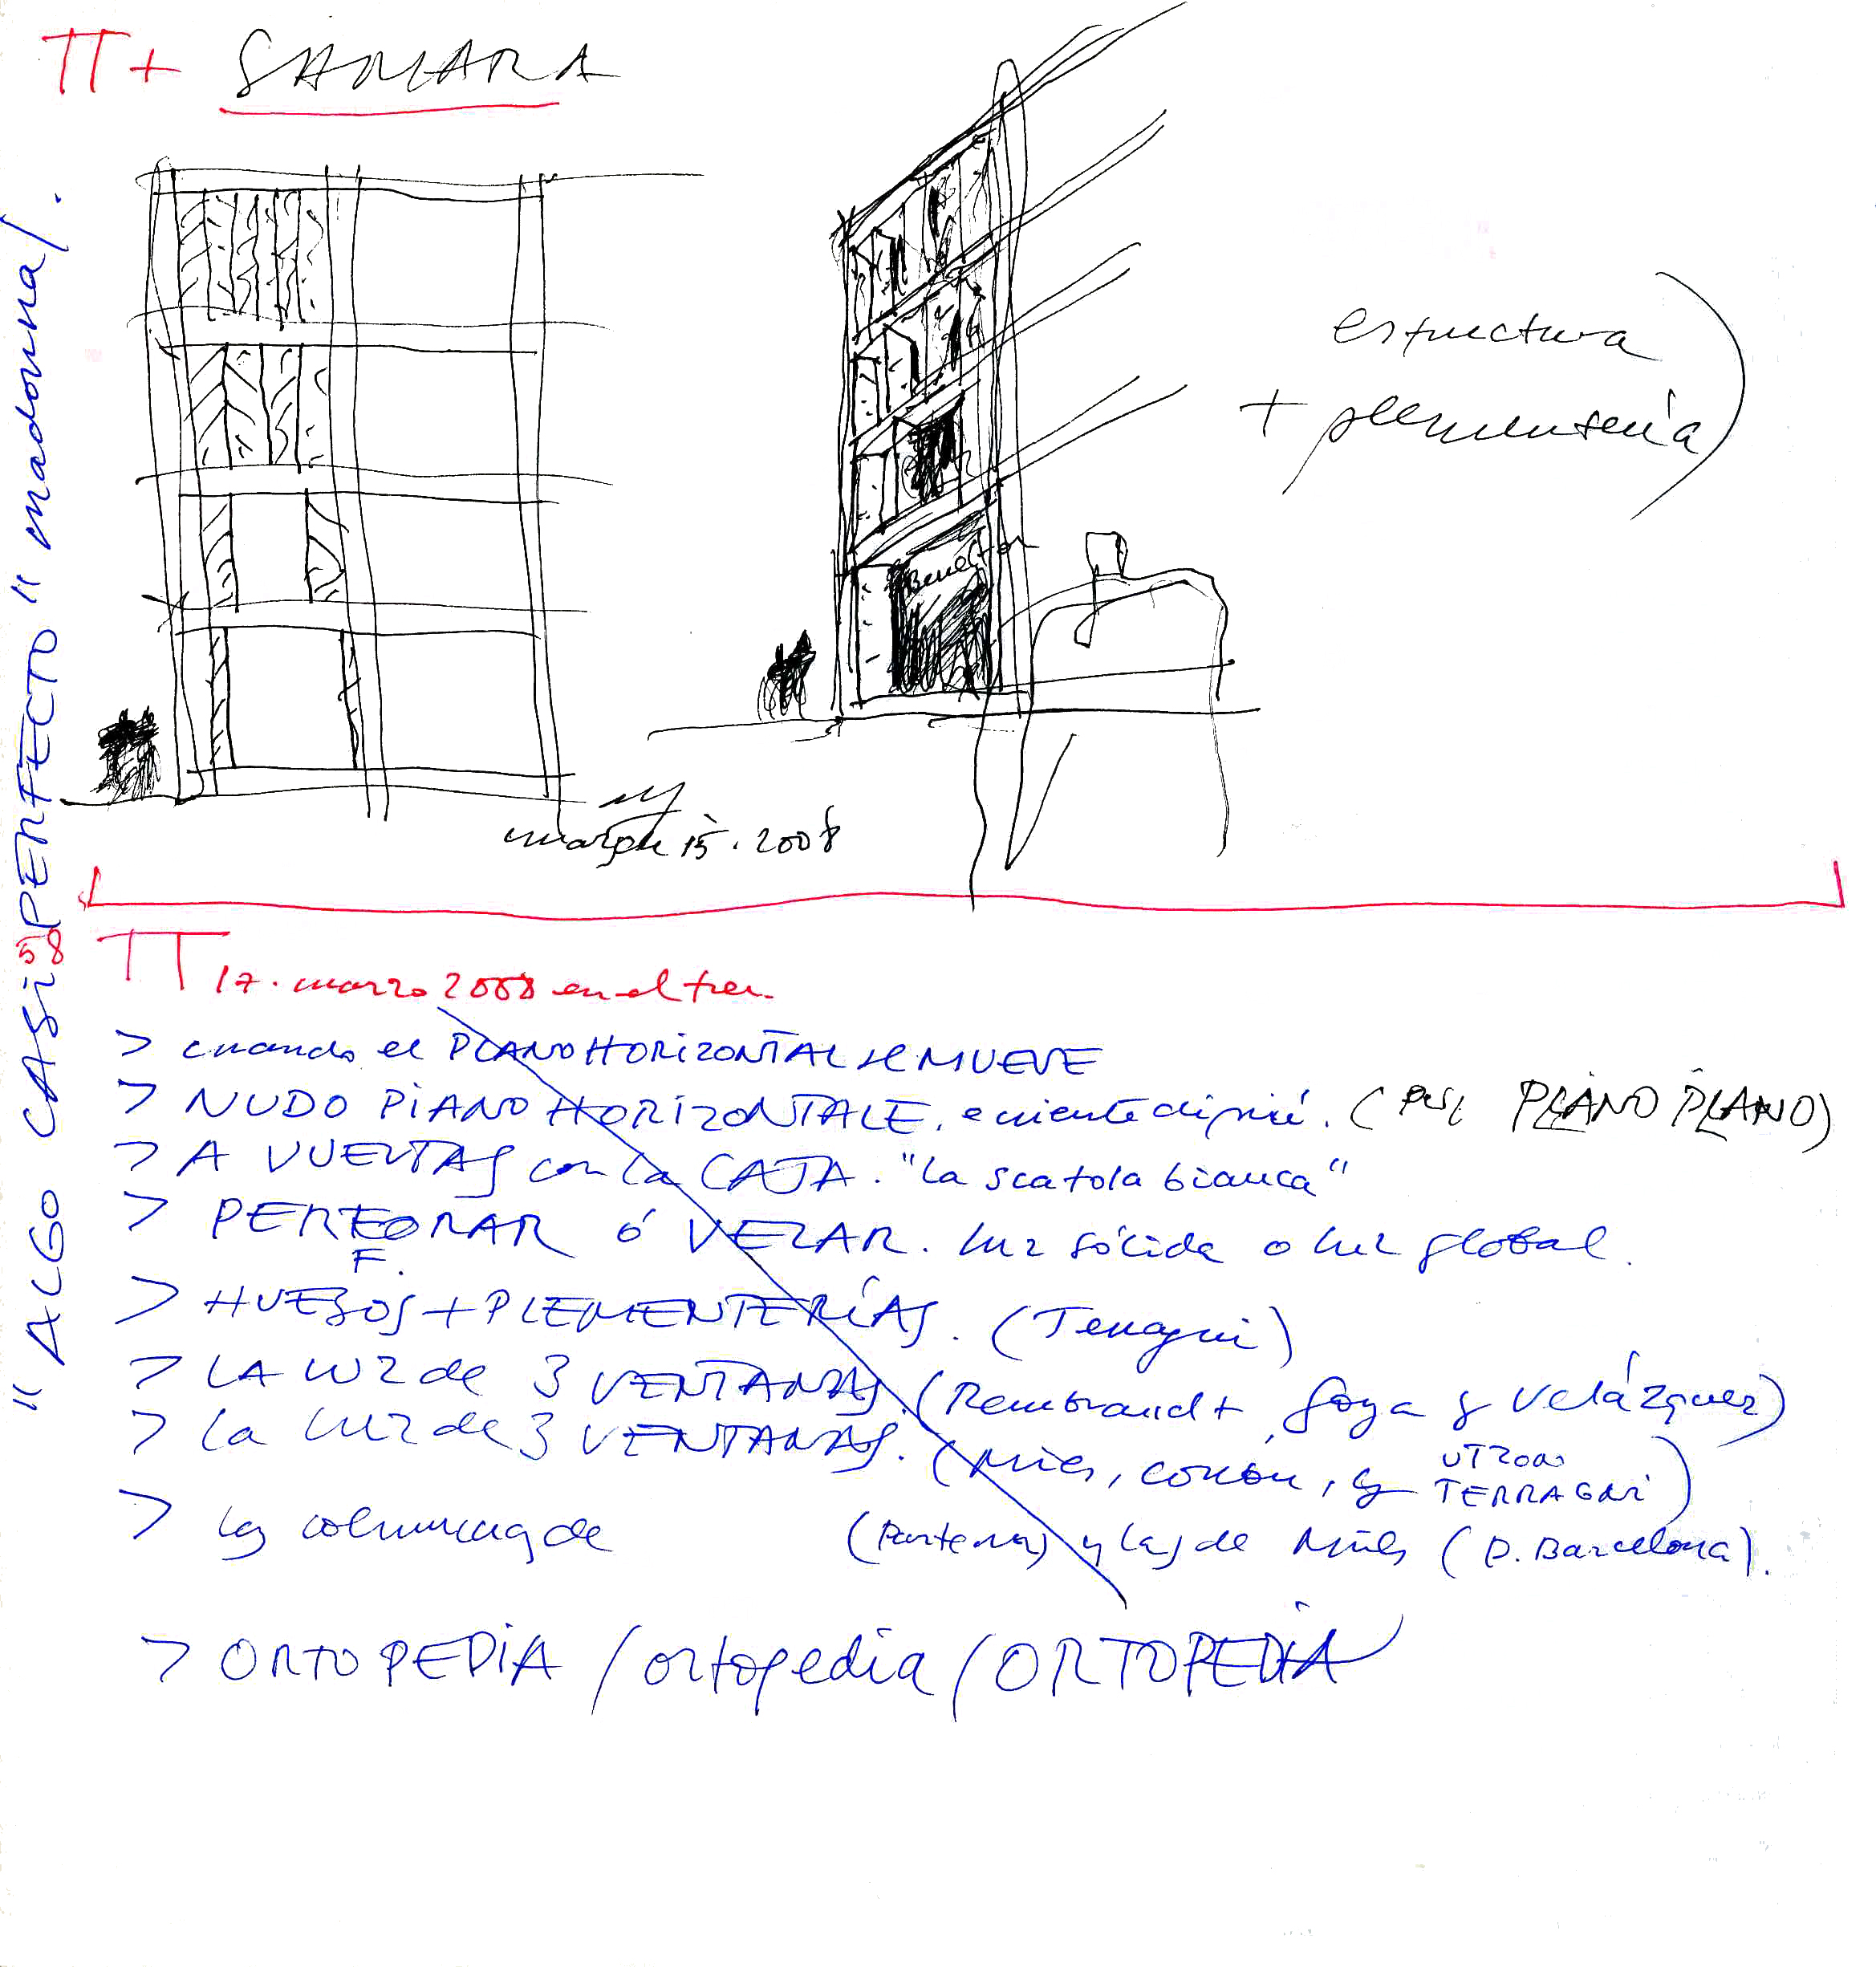 π + SAMARA
estructura
+ plementería
Benetton
marzo 15. 2008
"ALGO CASI PERFECTO" madonna/.
58
π 17. marzo 2008 en el tren.
> cuando el PLANO HORIZONTAL SE MUEVE
> NUDO PIANO HORIZONTALE. e niente di più. ( PLANO PLANO)
> A VUELTAS con la CAJA. "la scatola bianca"
> PERFORAR ó VELAR. luz sólida o luz global.
F.
> HUESOS + PLEMENTERÍAS. (Terragni)
> LA LUZ de 3 VENTANAS. (Rembrandt, Goya y Velázquez)
> la luz de 3 VENTANAS. (Mies, Corbu, y UTZON TERRAGNI)
> las columnas de (Partenón) y las de Mies (P. Barcelona).
> ORTOPEDIA / ortopedia / ORTOPEDIA